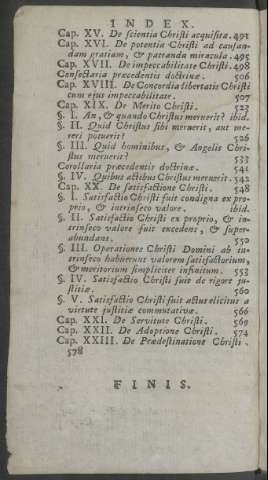 INDEX.
Cap. XV. De scientia Christi acquisita. 491
Cap. XVI. De potentia Christi ad causan-
dam gratiam, & patranda miracula. 495
Cap. XVII. De impeccabilitate Christi. 498
Consectaria præcedentis doctrinæ. 506
Cap. XVIII. De Concordia libertatis Christi
cum ejus impeccabilitate. 507
Cap. XIX. De Merito Christi. 523
§. I. An, & quando Christus meruerit? ibid.
§. II. Quid Christus sibi meruerit, aut me-
reri potuerit? 526
§. III. Quid hominibus, & Angelis Chri-
stus meruerit? 533
Corollaria præcedentis doctrinæ. 541
§. IV. Quibus actibus Christus meruerit. 542
Cap. XX. De satisfactione Christi. 548
§. I. Satisfactio Christi fuit condigna ex pro-
prio, & intrinseco valore. ibid.
§. II. Satisfactio Christi ex proprio, & in-
trinseco valore fuit excedens, & super-
abundans. 550
§. III. Operationes Christi Domini ab in-
trinseco habuerunt valorem satisfactorium,
& meritorium simpliciter infinitum. 553
§. IV. Satisfactio Christi fuit de rigore ju-
stitiæ. 560
§. V. Satisfactio Christi fuit actus elicitus a
virtute justitiæ commutativæ. 566
Cap. XXI. De Servitute Christi. 569
Cap. XXII. De Adoptione Christi. 574
Cap. XXIII. De Prædestinatione Christi.
578
FINIS.